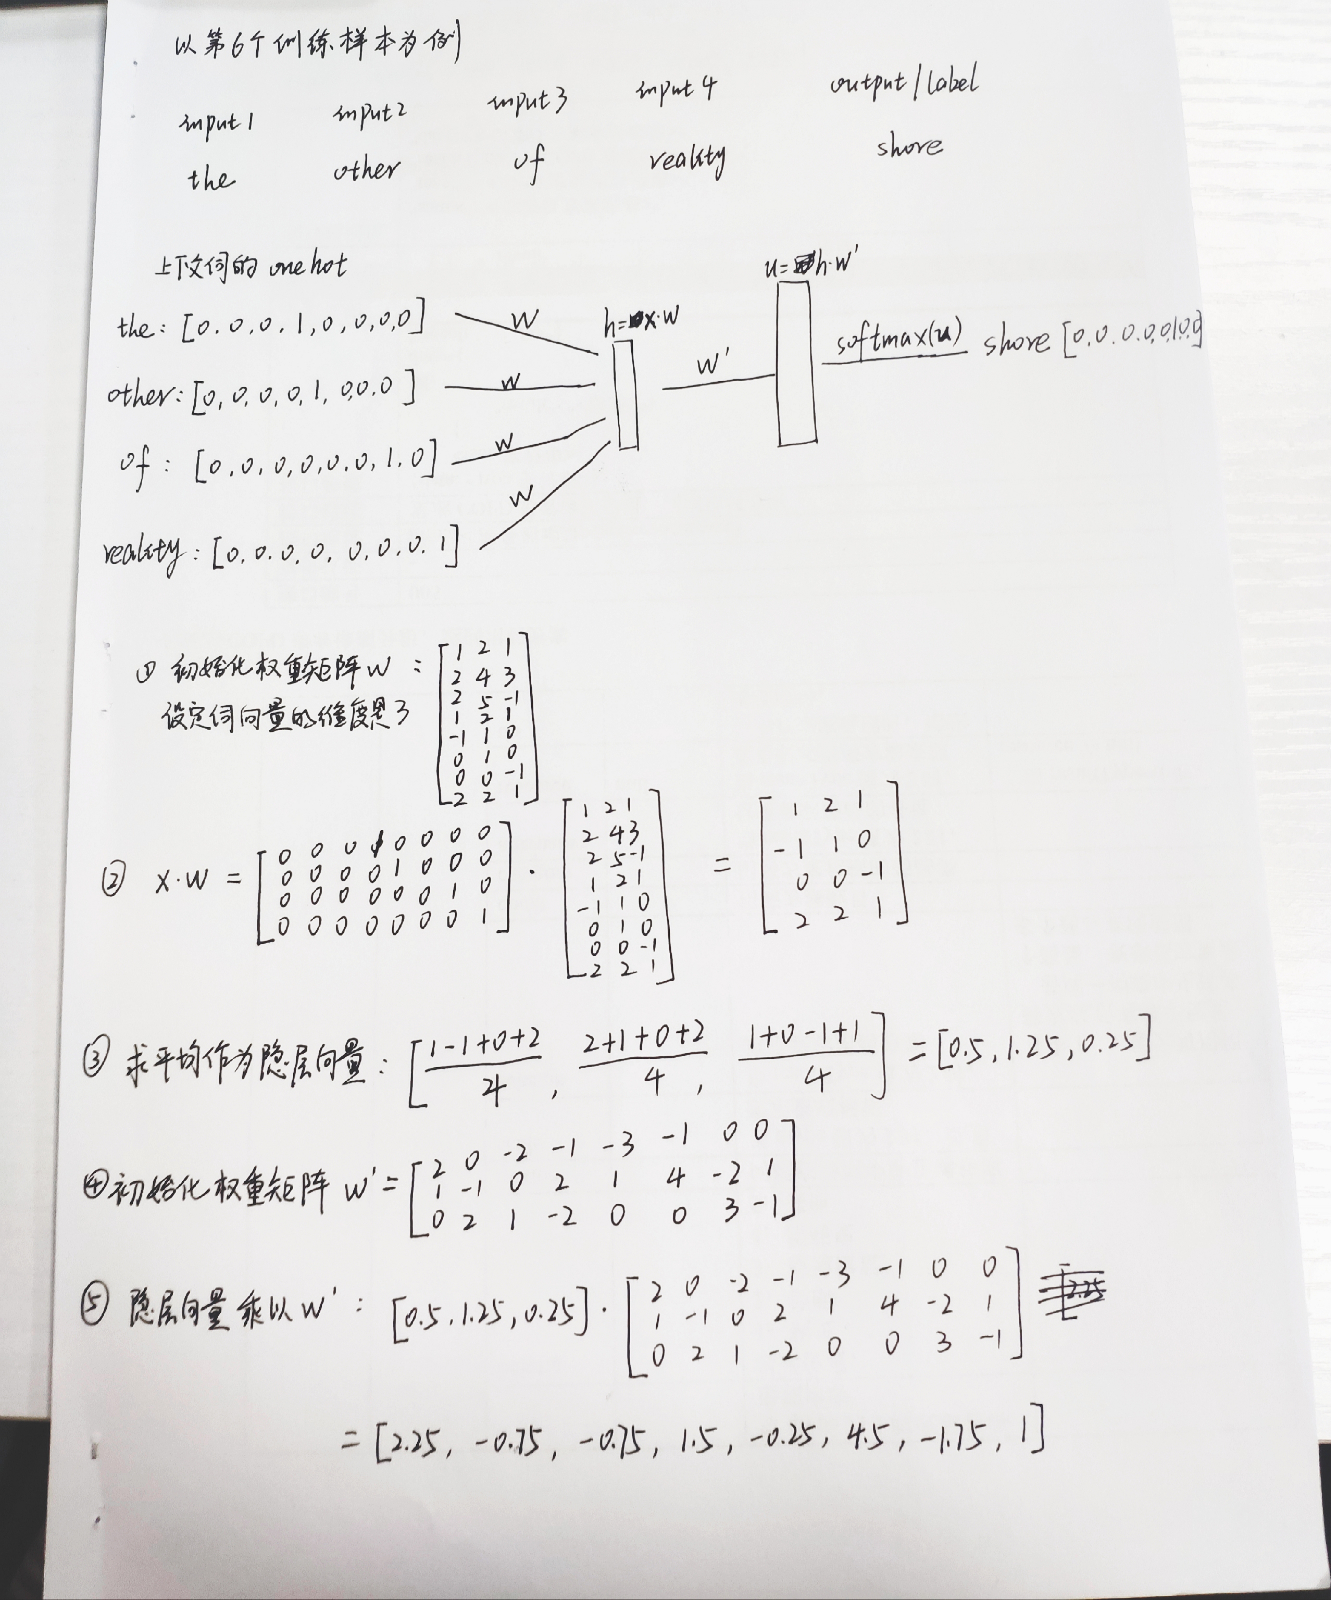 以第6个训练样本为例
input1 input2 input3 input4 output/label
the other of reality shore
上下文词的 onehot
the: [0,0,0,1,0,0,0,0]
other: [0,0,0,0,1,0,0,0]
of: [0,0,0,0,0,0,1,0]
reality: [0,0,0,0,0,0,0,1]
W
W
W
W
h=x·W
W'
u=h·W'
softmax(u) shore [0,0,0,0,0,1,0,0]
① 初始化权重矩阵W:
设定词向量的维度是3
1 2 1
2 4 3
2 5 -1
1 2 1
-1 1 0
0 1 0
0 0 -1
2 2 1
② X·W =
0 0 0 1 0 0 0 0
0 0 0 0 1 0 0 0
0 0 0 0 0 0 1 0
0 0 0 0 0 0 0 1
·
1 2 1
2 4 3
2 5 -1
1 2 1
-1 1 0
0 1 0
0 0 -1
2 2 1
=
1 2 1
-1 1 0
0 0 -1
2 2 1
③ 求平均作为隐层向量: [(1-1+0+2)/4, (2+1+0+2)/4, (1+0-1+1)/4] = [0.5, 1.25, 0.25]
④ 初始化权重矩阵 W' =
2 0 -2 -1 -3 -1 0 0
1 -1 0 2 1 4 -2 1
0 2 1 -2 0 0 3 -1
⑤ 隐层向量乘以W': [0.5, 1.25, 0.25] ·
2 0 -2 -1 -3 -1 0 0
1 -1 0 2 1 4 -2 1
0 2 1 -2 0 0 3 -1
= [2.25, -0.75, -0.75, 1.5, -0.25, 4.5, -1.75, 1]